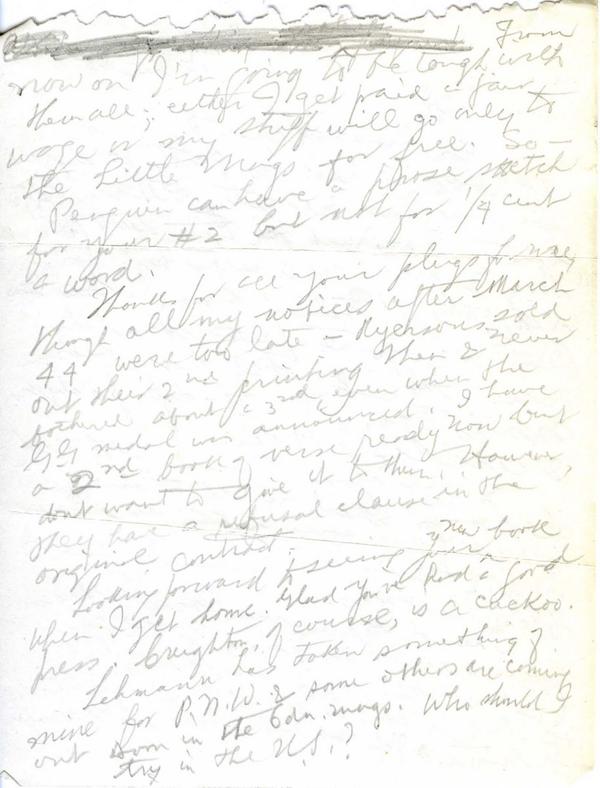 From
now on I'm going to be tough with
them all; either I get paid a fair
wage or my stuff will go only to
the little mags for free. So—
Penguin can have a prose sketch
for your #2 but not for ¼ cent
a word.
Thanks for all your plugs for me,
though all my notices after March
44 were too late – Ryersons sold
out their 2nd printing then & never
bothered about a 3rd even when the
GG medal was announced. I have
a 2nd book of verse ready now but
don't want to give it to them. However,
they have a refusal clause in the
original contract.
Looking forward to seeing your new book
when I get home. Glad you've had a good
press. Creighton, of course, is a cuckoo.
Lehmann has taken something of
mine for P.N.W. & some others are coming
out soon in the Edn. mags. Who should I
try in the U.S.?